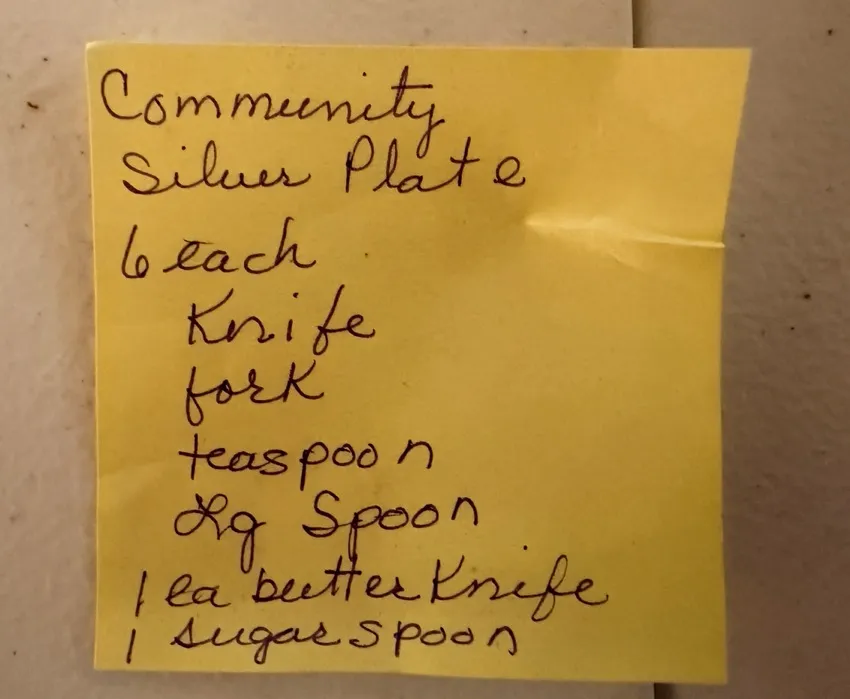 Community
Silver Plate
6 each
Knife
fork
teaspoon
Lg Spoon
1 ea butter Knife
1 sugar spoon